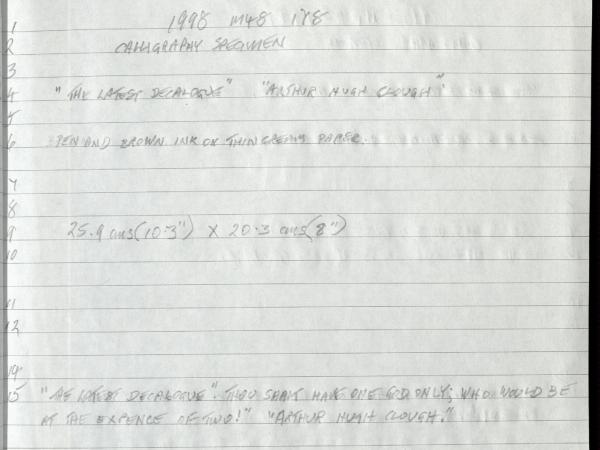 1 1998 M48 178
2 CALLIGRAPHY SPECIMEN
3
4 "THE LATEST DECALOGUE" "ARTHUR HUGH CLOUGH"
5
6 PEN AND BROWN INK ON THIN CREAM PAPER.
7
8
9 25.9 cms (10.3") X 20.3 cms (8")
10
11
12
14
15 "THE LATEST DECALOGUE". THOU SHALT HAVE ONE GOD ONLY; WHO WOULD BE
AT THE EXPENCE OF TWO!" "ARTHUR HUGH CLOUGH."